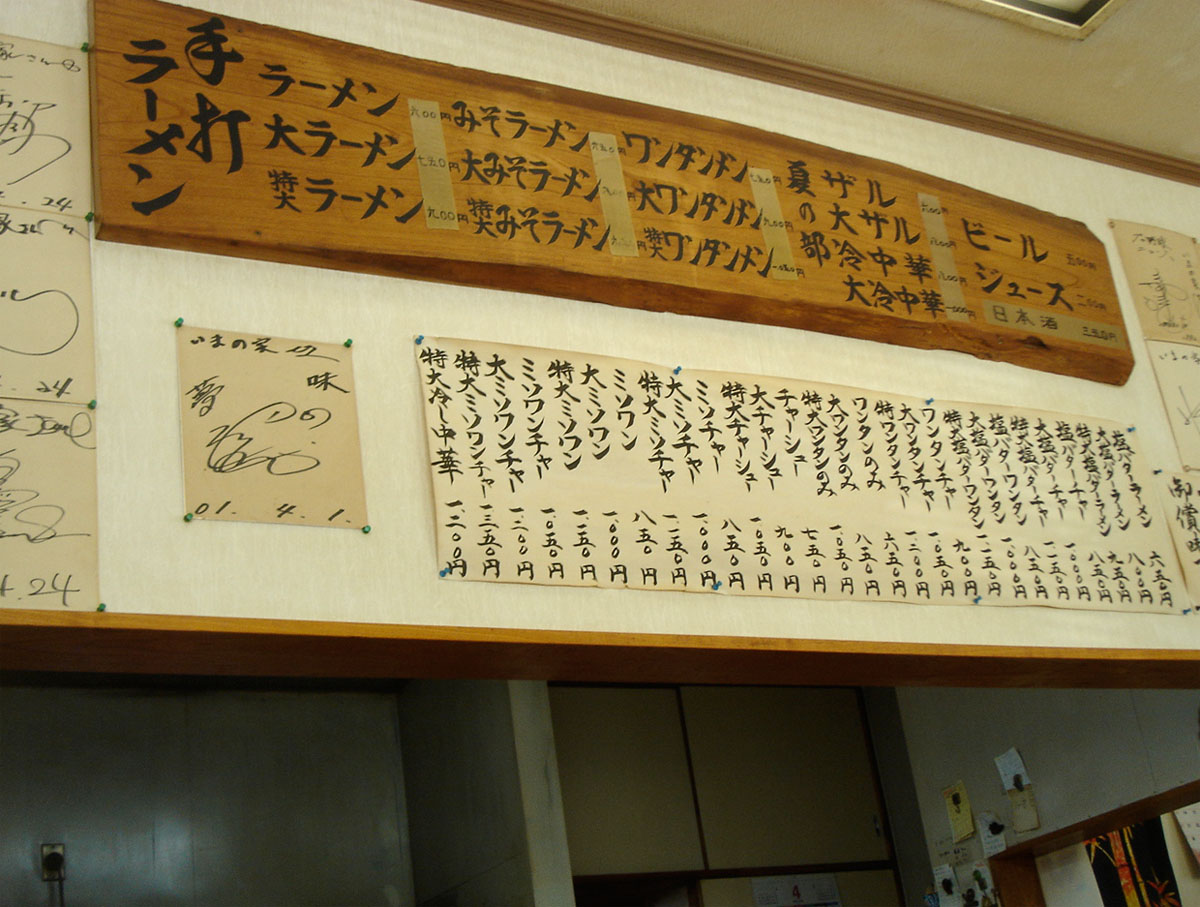 手打
ラーメン
ラーメン 六00円
大ラーメン 七五0円
特大ラーメン 九00円
みそラーメン
大みそラーメン
特大みそラーメン
ワンタンメン 七五0円
大ワンタンメン 九00円
特大ワンタンメン 一0五0円
夏の部
ザル
大ザル 八00円
冷中華 八00円
大冷中華 一000円
ビール 五00円
ジュース 二00円
日本酒 三五0円
塩バターラーメン 六五0円
大塩バターラーメン 八00円
特大塩バターラーメン 九五0円
塩バターチャー 八五0円
大塩バターチャー 一000円
特大塩バターチャー 一一五0円
塩バターワンタン 八五0円
大塩バターワンタン 一000円
特大塩バターワンタン 一一五0円
ワンタンチャー 九00円
大ワンタンチャー 一0五0円
特大ワンタンチャー 一二00円
ワンタンのみ 六五0円
大ワンタンのみ 八五0円
特大ワンタンのみ 一0五0円
チャーシュー 七五0円
大チャーシュー 九00円
特大チャーシュー 一0五0円
ミソチャー 八五0円
大ミソチャー 一000円
特大ミソチャー 一一五0円
ミソワン 八五0円
大ミソワン 一000円
特大ミソワン 一一五0円
ミソワンチャー 一0五0円
大ミソワンチャー 一二00円
特大ミソワンチャー 一三五0円
特大冷し中華 一二00円
味
01. 4. 1.
24
24
4.24
4